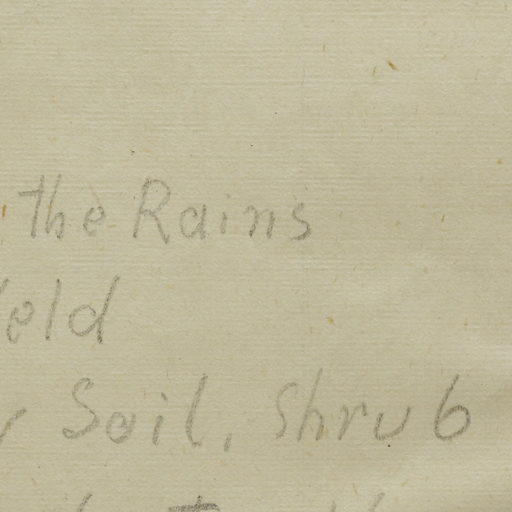 the Rains
eld
Soil, Shrub